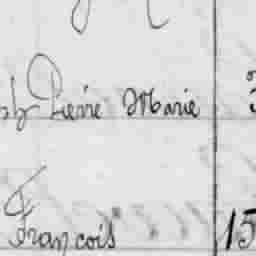 Pierre Marie
François 15